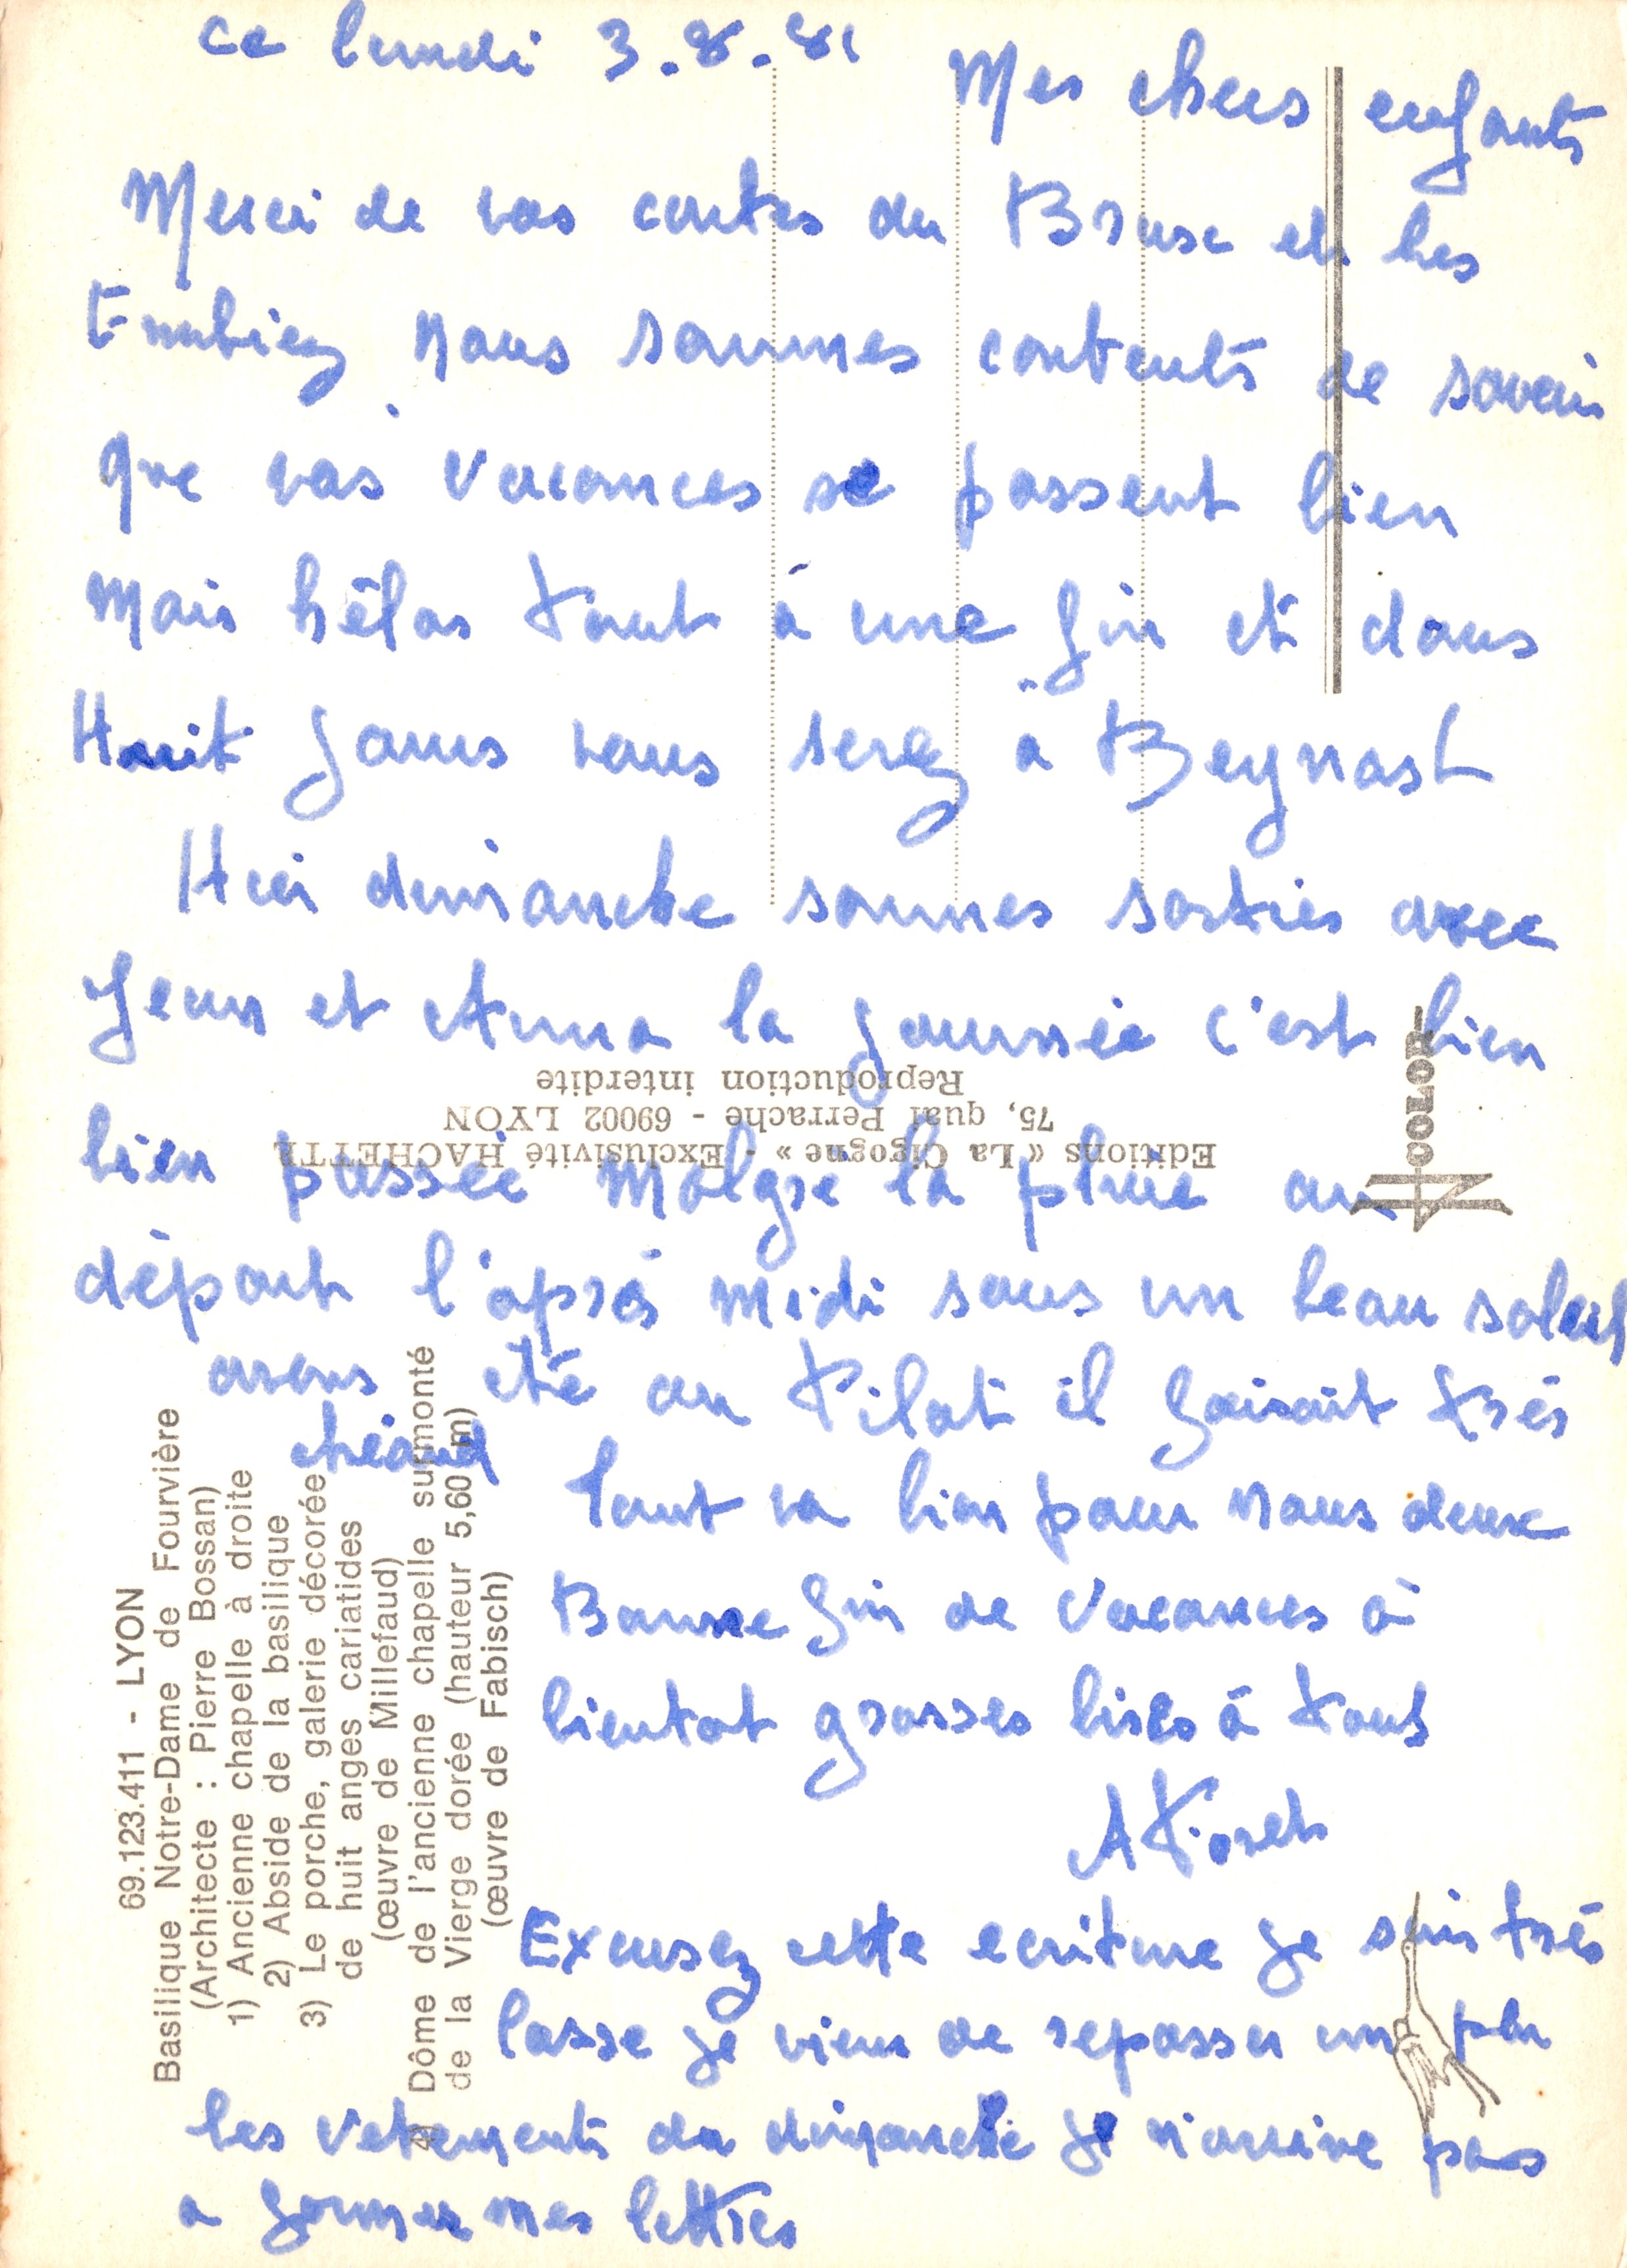 ce lundi 3.8.81
Mes chers enfants
Merci de vos cartes du Brusc et les
Embiez nous sommes contents de savoir
que vos vacances se passent bien
mais hélas tout à une fin et dans
Huit jours vous serez a Beynost
Hier dimanche sommes sorties avec
Jean et Anna la journée c'est bien
bien passée malgré la pluie au
départ l'après midi sous un beau soleil
avons été au Pilat il faisait très
chaud
Tout va bien pour nous deux
Bonne fin de vacances à
bientot grosses bises à tous
Excusez cette ecriture je suis très
lasse je viens de repasser un peu
les vetements du dimanche je n'arrive pas
a former mes lettres
Editions « La Cigogne » - Exclusivité HACHETTE
75, quai Perrache - 69002 LYON
Reproduction interdite
COLOR
69.123.411 - LYON
Basilique Notre-Dame de Fourvière
(Architecte : Pierre Bossan)
1) Ancienne chapelle à droite
2) Abside de la basilique
3) Le porche, galerie décorée
de huit anges cariatides
(œuvre de Millefaud)
4) Dôme de l'ancienne chapelle surmonté
de la Vierge dorée (hauteur 5,60 m)
(œuvre de Fabisch)